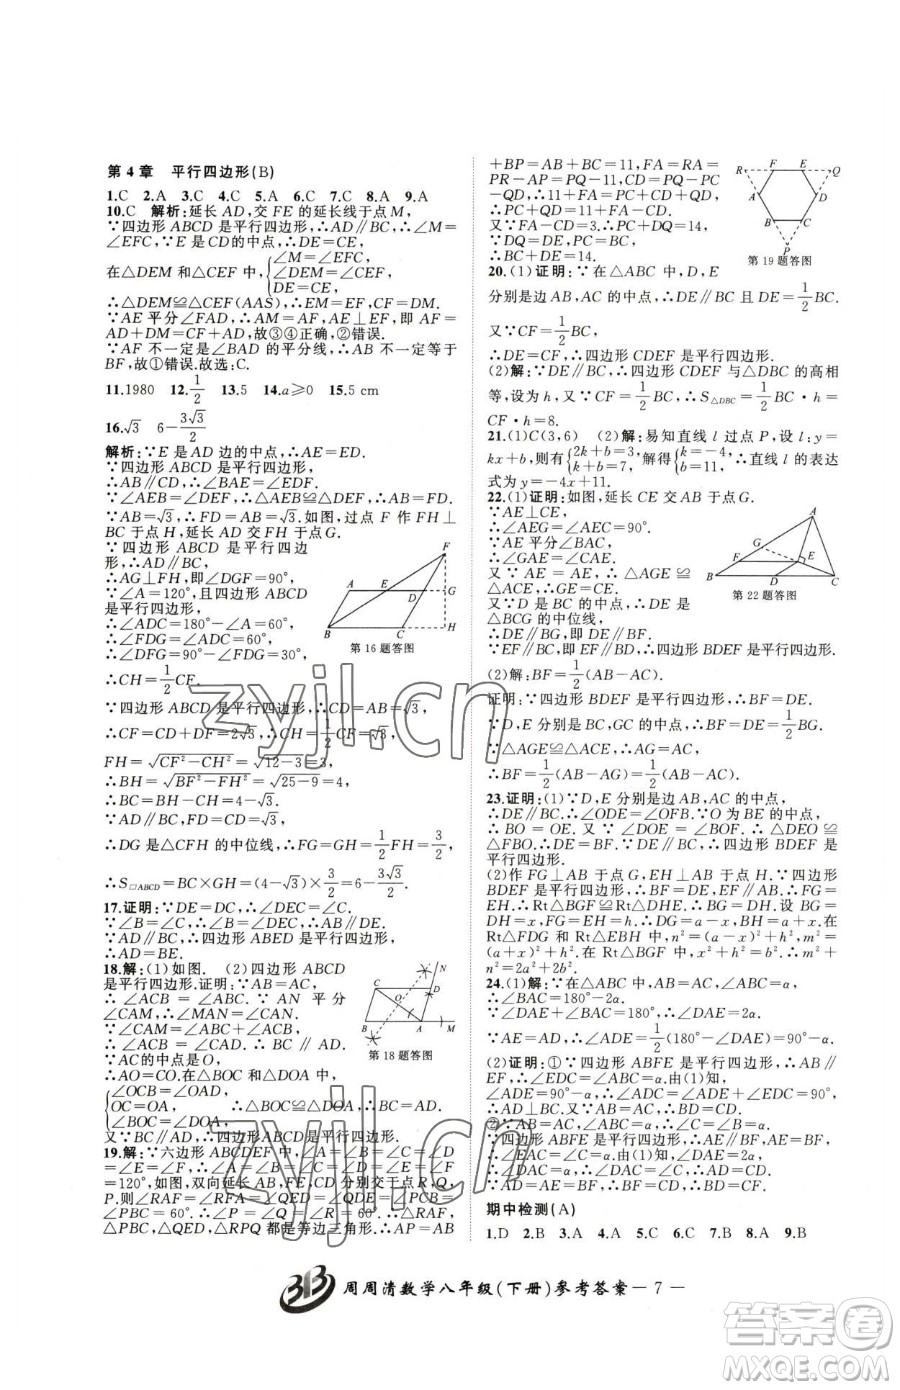 第 4 章 平行四边形(B)
1.C 2.A 3.C 4.C 5.A 6.C 7.C 8.A 9.A
10.C 解析:延长 AD,交 FE 的延长线于点 M,
∵四边形 ABCD 是平行四边形,∴AD∥BC,∴∠M
=∠EFC,∵E 是 CD 的中点,∴DE=CE,
在△DEM 和△CEF 中,{∠M=∠EFC,
∠DEM=∠CEF,
DE=CE,
∴△DEM≌△CEF(AAS),∴EM=EF,CF=DM.
∵AE 平分∠FAD,∴AM=AF,AE⊥EF,即 AF=
AD+DM=CF+AD,故③④正确,②错误.
∵AF 不一定是∠BAD 的平分线,∴AB 不一定等于
BF,故①错误.故选:C.
11.1980 12.1/2 13.5 14.a≥0 15.5 cm
16.√3 6-3√3/2
解析:∵E 是 AD 边的中点,∴AE=ED.
∵四边形 ABCD 是平行四边形,
∴AB∥CD,∴∠BAE=∠EDF.
∵∠AEB=∠DEF,∴△AEB≌△DEF,∴AB=FD.
∵AB=√3,∴FD=AB=√3.如图,过点 F 作 FH⊥
BC 于点 H,延长 AD 交 FH 于点 G.
∵四边形 ABCD 是平行四边
形,∴AD∥BC,
∴AG⊥FH,即∠DGF=90°.
∵∠A=120°,且四边形 ABCD
是平行四边形,
∴∠ADC=180°-∠A=60°,
∴∠FDG=∠ADC=60°,
∴∠DFG=90°-∠FDG=30°,
∴CH=1/2CF.
F
A E D G
B C H
第 16 题答图
∵四边形 ABCD 是平行四边形,∴CD=AB=√3,
∴CF=CD+DF=2√3,∴CH=1/2CF=√3,
FH=√(CF²-CH²)=√(12-3)=3,
∴BH=√(BF²-FH²)=√(25-9)=4,
∴BC=BH-CH=4-√3.
∵AD∥BC,FD=CD=√3,
∴DG 是△CFH 的中位线,∴GH=1/2FH=3/2,
∴S▱ABCD=BC×GH=(4-√3)×3/2=6-3√3/2.
17.证明:∵DE=DC,∴∠DEC=∠C.
∵∠B=∠C,∴∠B=∠DEC,∴AB∥DE.
∵AD∥BC,∴四边形 ABED 是平行四边形,
∴AD=BE.
18.解:(1)如图. (2)四边形 ABCD
是平行四边形.证明:∵AB=AC,
∴∠ACB=∠ABC.∵AN 平分
∠CAM,∴∠CAN=∠MAN.
∵∠CAM=∠ABC+∠ACB,
∴∠CAN=∠ACB,∴BC∥AD.∵
AC的中点是 O,
∴AO=CO.在△BOC 和△DOA 中,
{∠OCB=∠OAD,
OC=OA,
∠BOC=∠DOA,
∴△BOC≌△DOA,∴BC=AD.
又∵BC∥AD,∴四边形ABCD是平行四边形.
N
C D
O
B A M
第 18 题答图
19.解:∵六边形 ABCDEF 中,∠A=∠B=∠C=∠D
=∠E=∠F,∴六边形 ABCDEF 的每一个内角都是
120°,如图,双向延长 AB,FE,CD 分别交于点 R,Q,
P,则∠RAF=∠RFA=∠QED=∠QDE=∠PCB=
∠PBC=60°,∴∠P=∠Q=∠R=60°,∴△RAF,
△PBC,△QED,△RPQ 都是等边三角形,∴AP=AB
+BP=AB+BC=11,FA=RA=
PR-AP=CD+PC+QD-PC-
QD,∴11+FA=PC+CD+QD,
∴PC+QD=11+3=14.
又∵FA=CD,∴PC+QD=14,
∵DQ=DE,PC=BC,
∴BC+DE=14.
R F E Q
A D
B C
P
第 19 题答图
20.(1)证明:∵在△ABC 中,D,E
分别是 AB,AC 的中点,∴DE∥BC 且 DE=1/2BC.
又∵CF=1/2BC,
∴DE=CF,∴四边形 CDEF 是平行四边形.
(2)解:∵DE∥BC,∴四边形 CDEF 与△DBC 的高相
等,设为 h,又∵CF=1/2BC,∴S△DBC=1/2BC·h=
CF·h=8.
21.(1)C(3,6) (2)解:易知直线 l 过点 P,设 l:y=
kx+b,则有{2k+b=3,
k+b=7,解得{k=-4,
b=11,∴直线 l 的表达
式为 y=-4x+11.
22.(1)证明:如图,延长 CE 交 AB 于点 G.
∵AE⊥CE,
∴∠AEG=∠AEC=90°.
∵AE 平分∠BAC,
∴∠GAE=∠CAE.
又∵AE=AE,∴△AGE≌
△ACE,∴GE=CE.
∵D 是 BC 的中点,∴DE 是
△BCG 的中位线,
∴DE∥BG,即 DE∥BF.
∵EF∥BC,∴四边形 BDEF 是平行四边形.
A
G
F E
B D C
第 22 题答图
(2)解:BF=1/2(AB-AC).
证明:∵四边形 BDEF 是平行四边形,∴BF=DE.
∵D,E 分别是 BC,GC 的中点,∴BF=DE=1/2BG.
∵△AGE≌△ACE,∴AG=AC,
∴BF=1/2(AB-AG)=1/2(AB-AC).
23.证明:(1)∵D,E 分别是 AB,AC 的中点,
∴DE∥BC,∴∠ODE=∠OFB.∵O 为 BE 的中点,
∴BO=OE.又∵∠DOE=∠BOF,∴△DEO≌
△FBO.∴DE=BF.又∵DE∥BF,∴四边形 BDEF 是
平行四边形.
(2)作 FG⊥AB 于点 G,EH⊥AB 于点 H.∵四边形
BDEF 是平行四边形,∴BF=DE,EF=BD,FG=
EH.∴Rt△BGF≌Rt△DHE.∴BG=DH.设 BG=
DH=x,FG=EH=h,∴DG=a-x,BH=a+x.在
Rt△FDG 和 Rt△EBH 中,n²=(a-x)²+h²,m²=
(a+x)²+h².在 Rt△BGF 中,b²=x²+h²,∴m²+
n²=2(a²+b²).
24.(1)解:∵AB=AC,∠ABC=α,
∴∠BAC=180°-2α.
∵∠DAE+∠BAC=180°,∴∠DAE=2α.
∵AE=AD,∴∠ADE=1/2(180°-∠DAE)=90°-α.
(2)证明:①∵四边形 ABFE 是平行四边形,∴AB∥
EF,∴∠EDC=∠ABC=α.由(1)知,
∠ADE=90°-α,∴∠ADC=∠ADE+∠EDC=90°,
∴AD⊥BC.又∵AB=AC,∴BD=CD.
②∵AB=AC,∠ABC=α,∴∠C=α.
∵四边形 ABFE 是平行四边形,∴AE∥BF,AE=BF,
∴∠EAC=∠C=α.由(1)知,∠DAE=2α,
∴∠DAC=α,∴∠DAC=∠C,∴AD=CD.
∵AD=AE=BF,∴BF=CD,∴BD=CF.
期中检测(A)
1.D 2.B 3.A 4.A 5.C 6.C 7.B 8.A 9.B
周周清数学八年级(下册)参考答案 — 7 —
zyjl.cn
zyjl.cn
答案圈
MXQE.COM